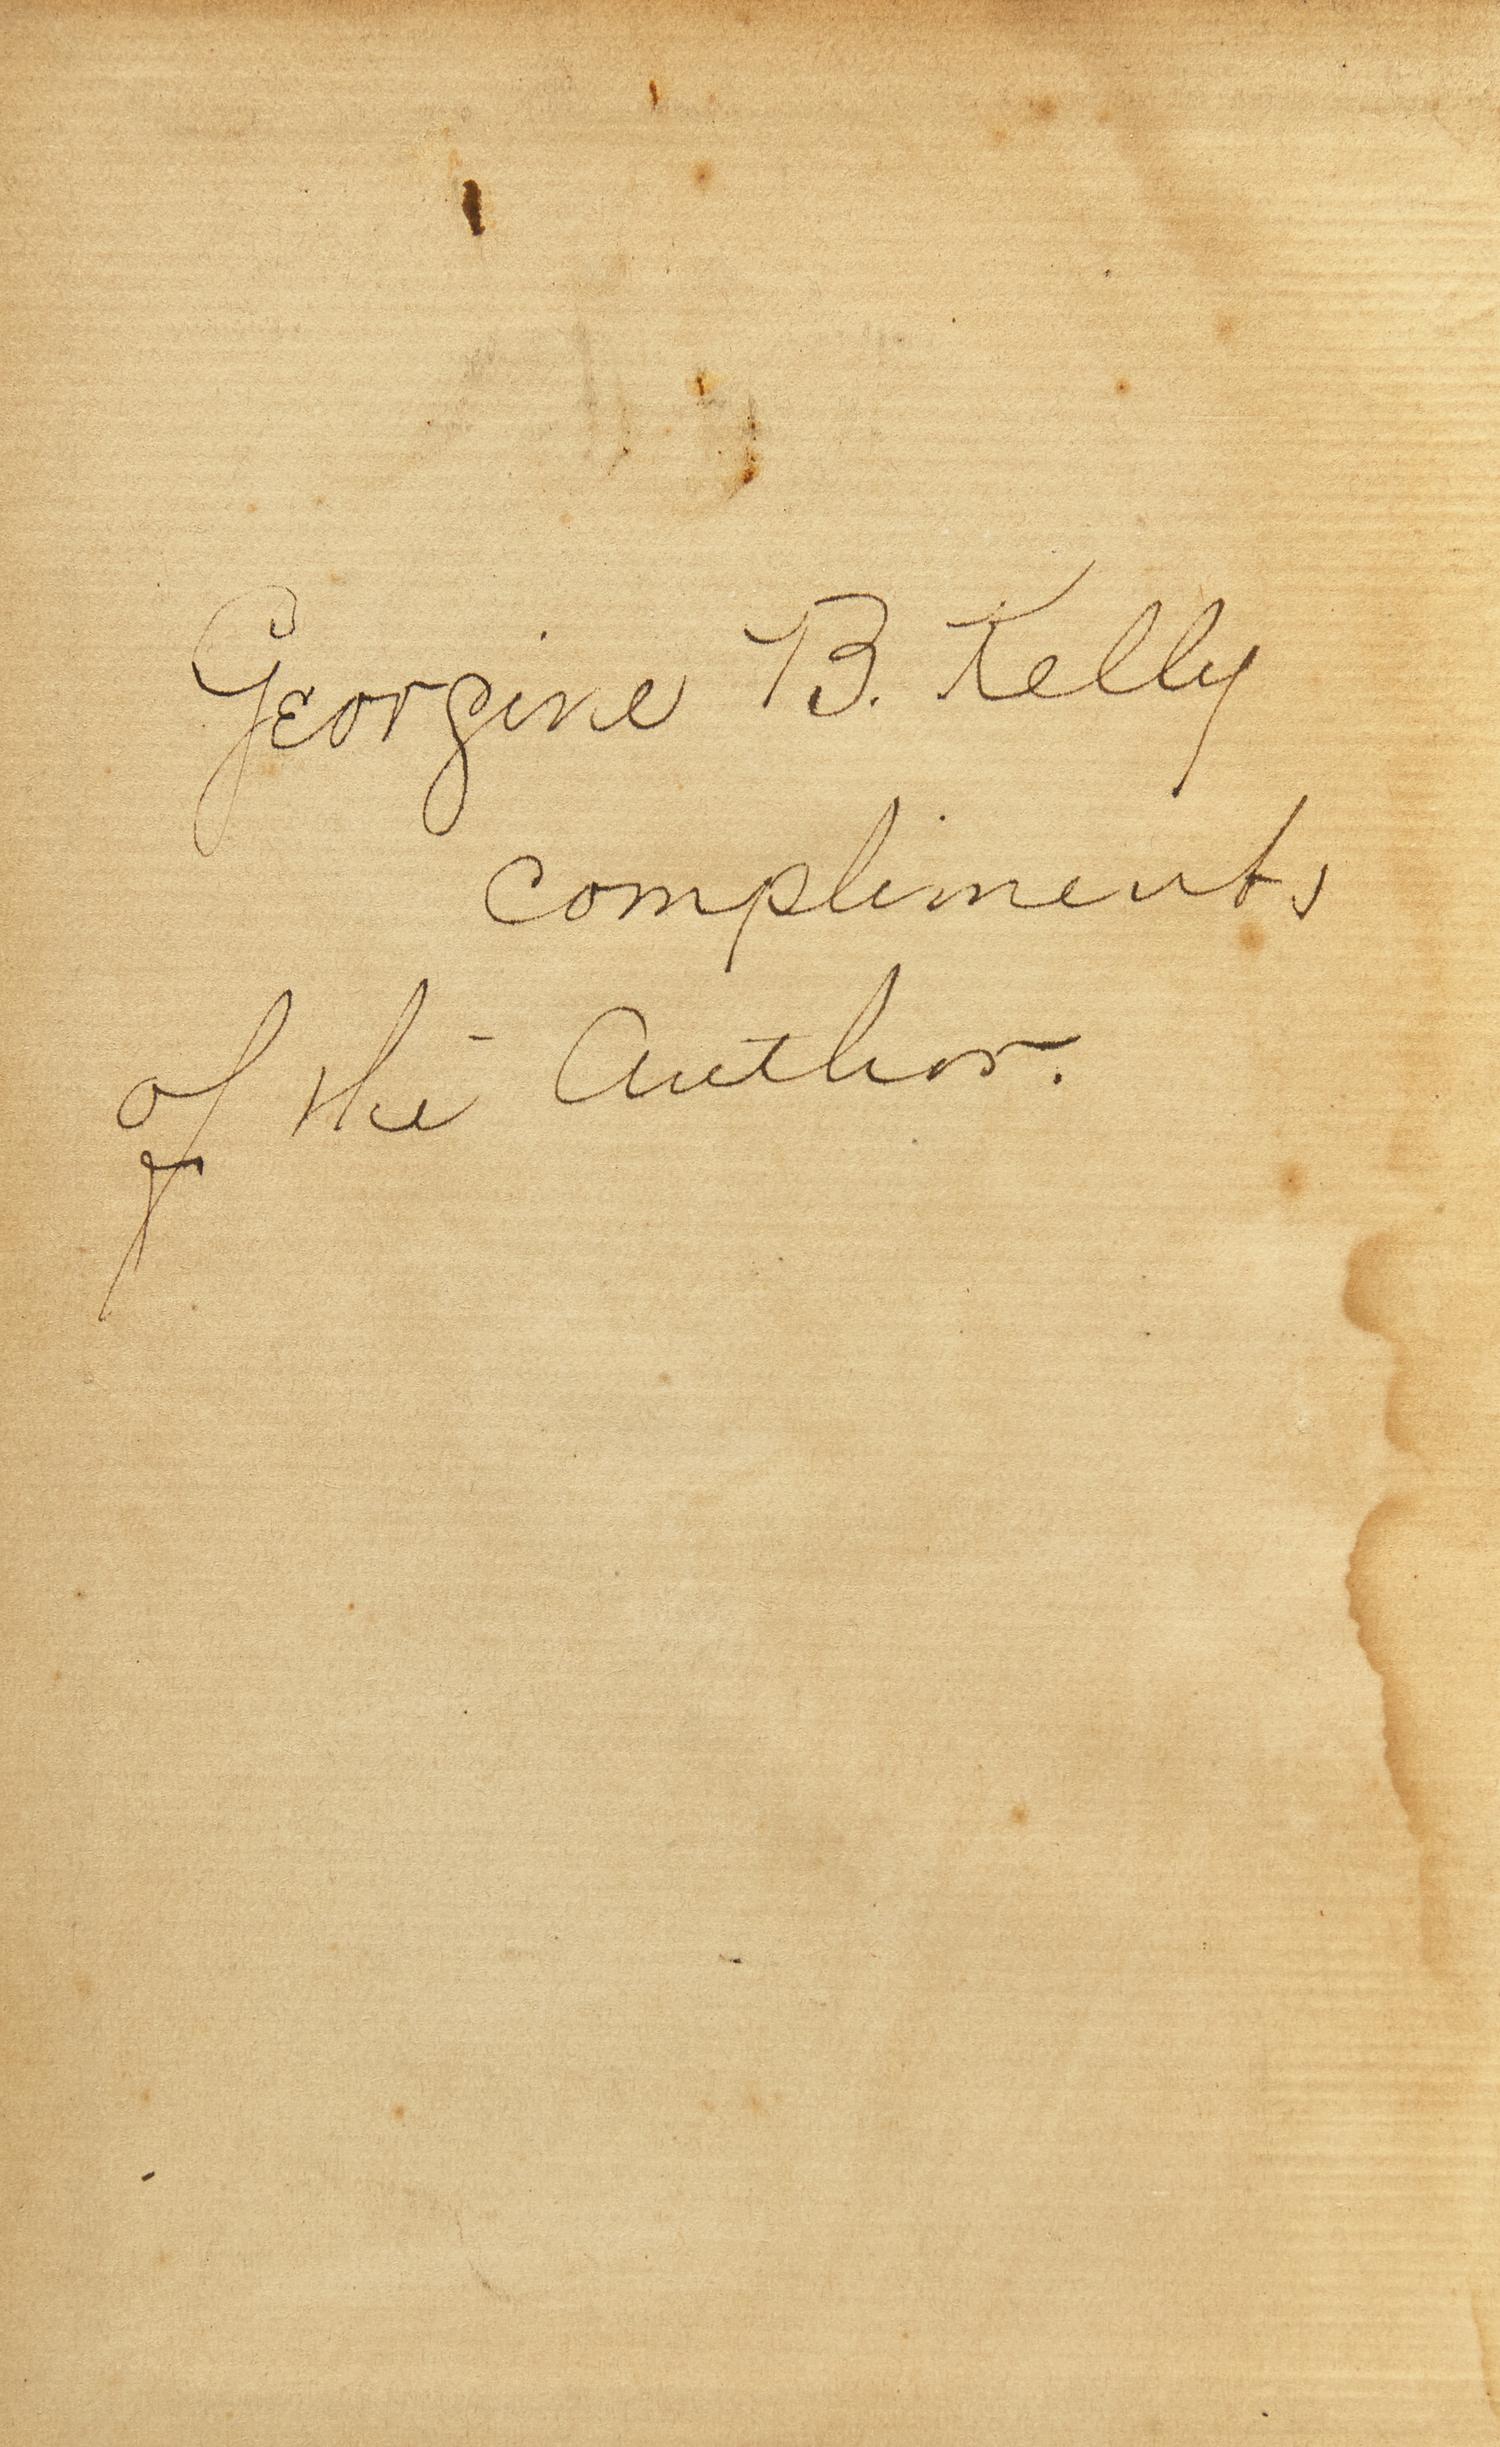 Georgine B. Kelly
compliments
of the Author.